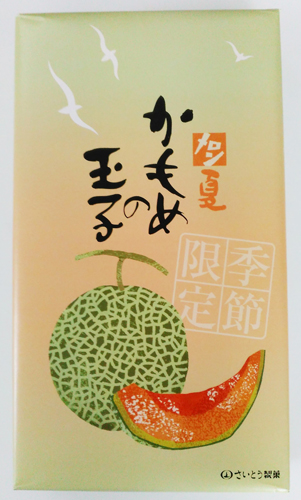 メロン
夏
かもめ
の
玉子
季節
限定
さいとう製菓